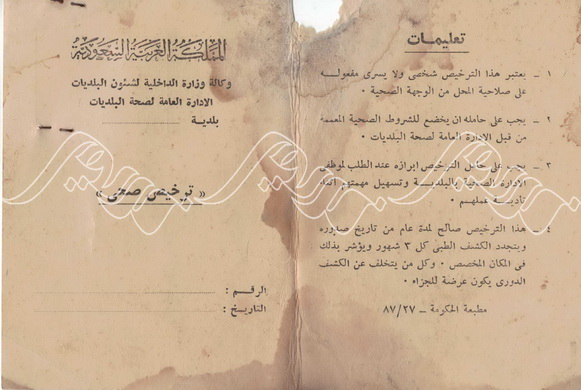 تعليمات
١ – يعتبر هذا الترخيص شخصى ولا يسرى مفعوله
على صلاحية المحل من الوجهة الصحية ·
٢ – يجب على حامله ان يخضع للشروط الصحية المعممه
من قبل الادارة العامة لصحة البلديات ·
٣ – يجب على حامل الترخيص ابرازه عند الطلب لموظفى
الادارة الصحية بالبلدية وتسهيل مهمتهم اثناء
تأدية عملهم ·
٤ – هذا الترخيص صالح لمدة عام من تاريخ صدوره
ويتجدد الكشف الطبى كل ٣ شهور ويؤشر بذلك
فى المكان المخصص · وكل من يتخلف عن الكشف
الدورى يكون عرضة للجزاء ·
مطبعة الحكومة – ٨٧/٢٧
المملكة العربية السعودية
وكالة وزارة الداخلية لشئون البلديات
الادارة العامة لصحة البلديات
بلدية
« ترخيص صحى »
الرقم :
التاريخ :